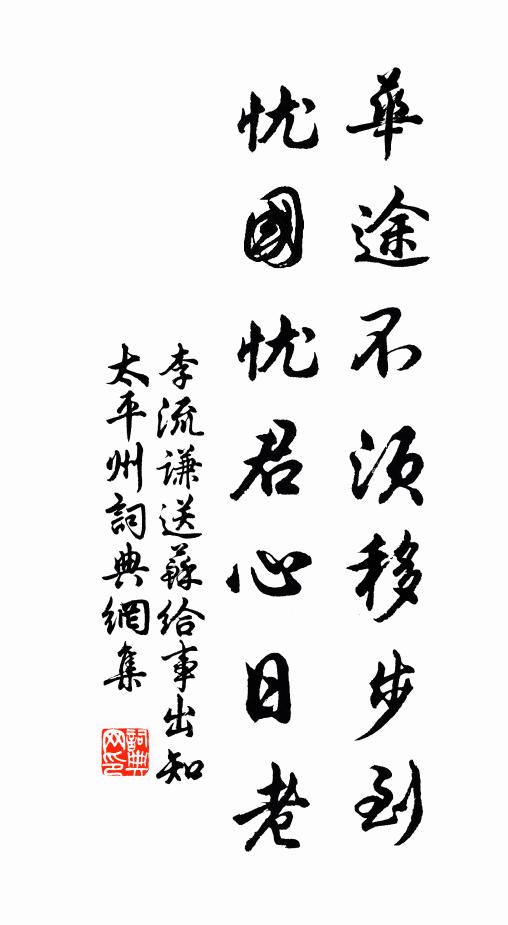 華途不須移步到
忧國忧君心日老
李流謙送蘇給事出知
太平州詞典網集
詞典网印